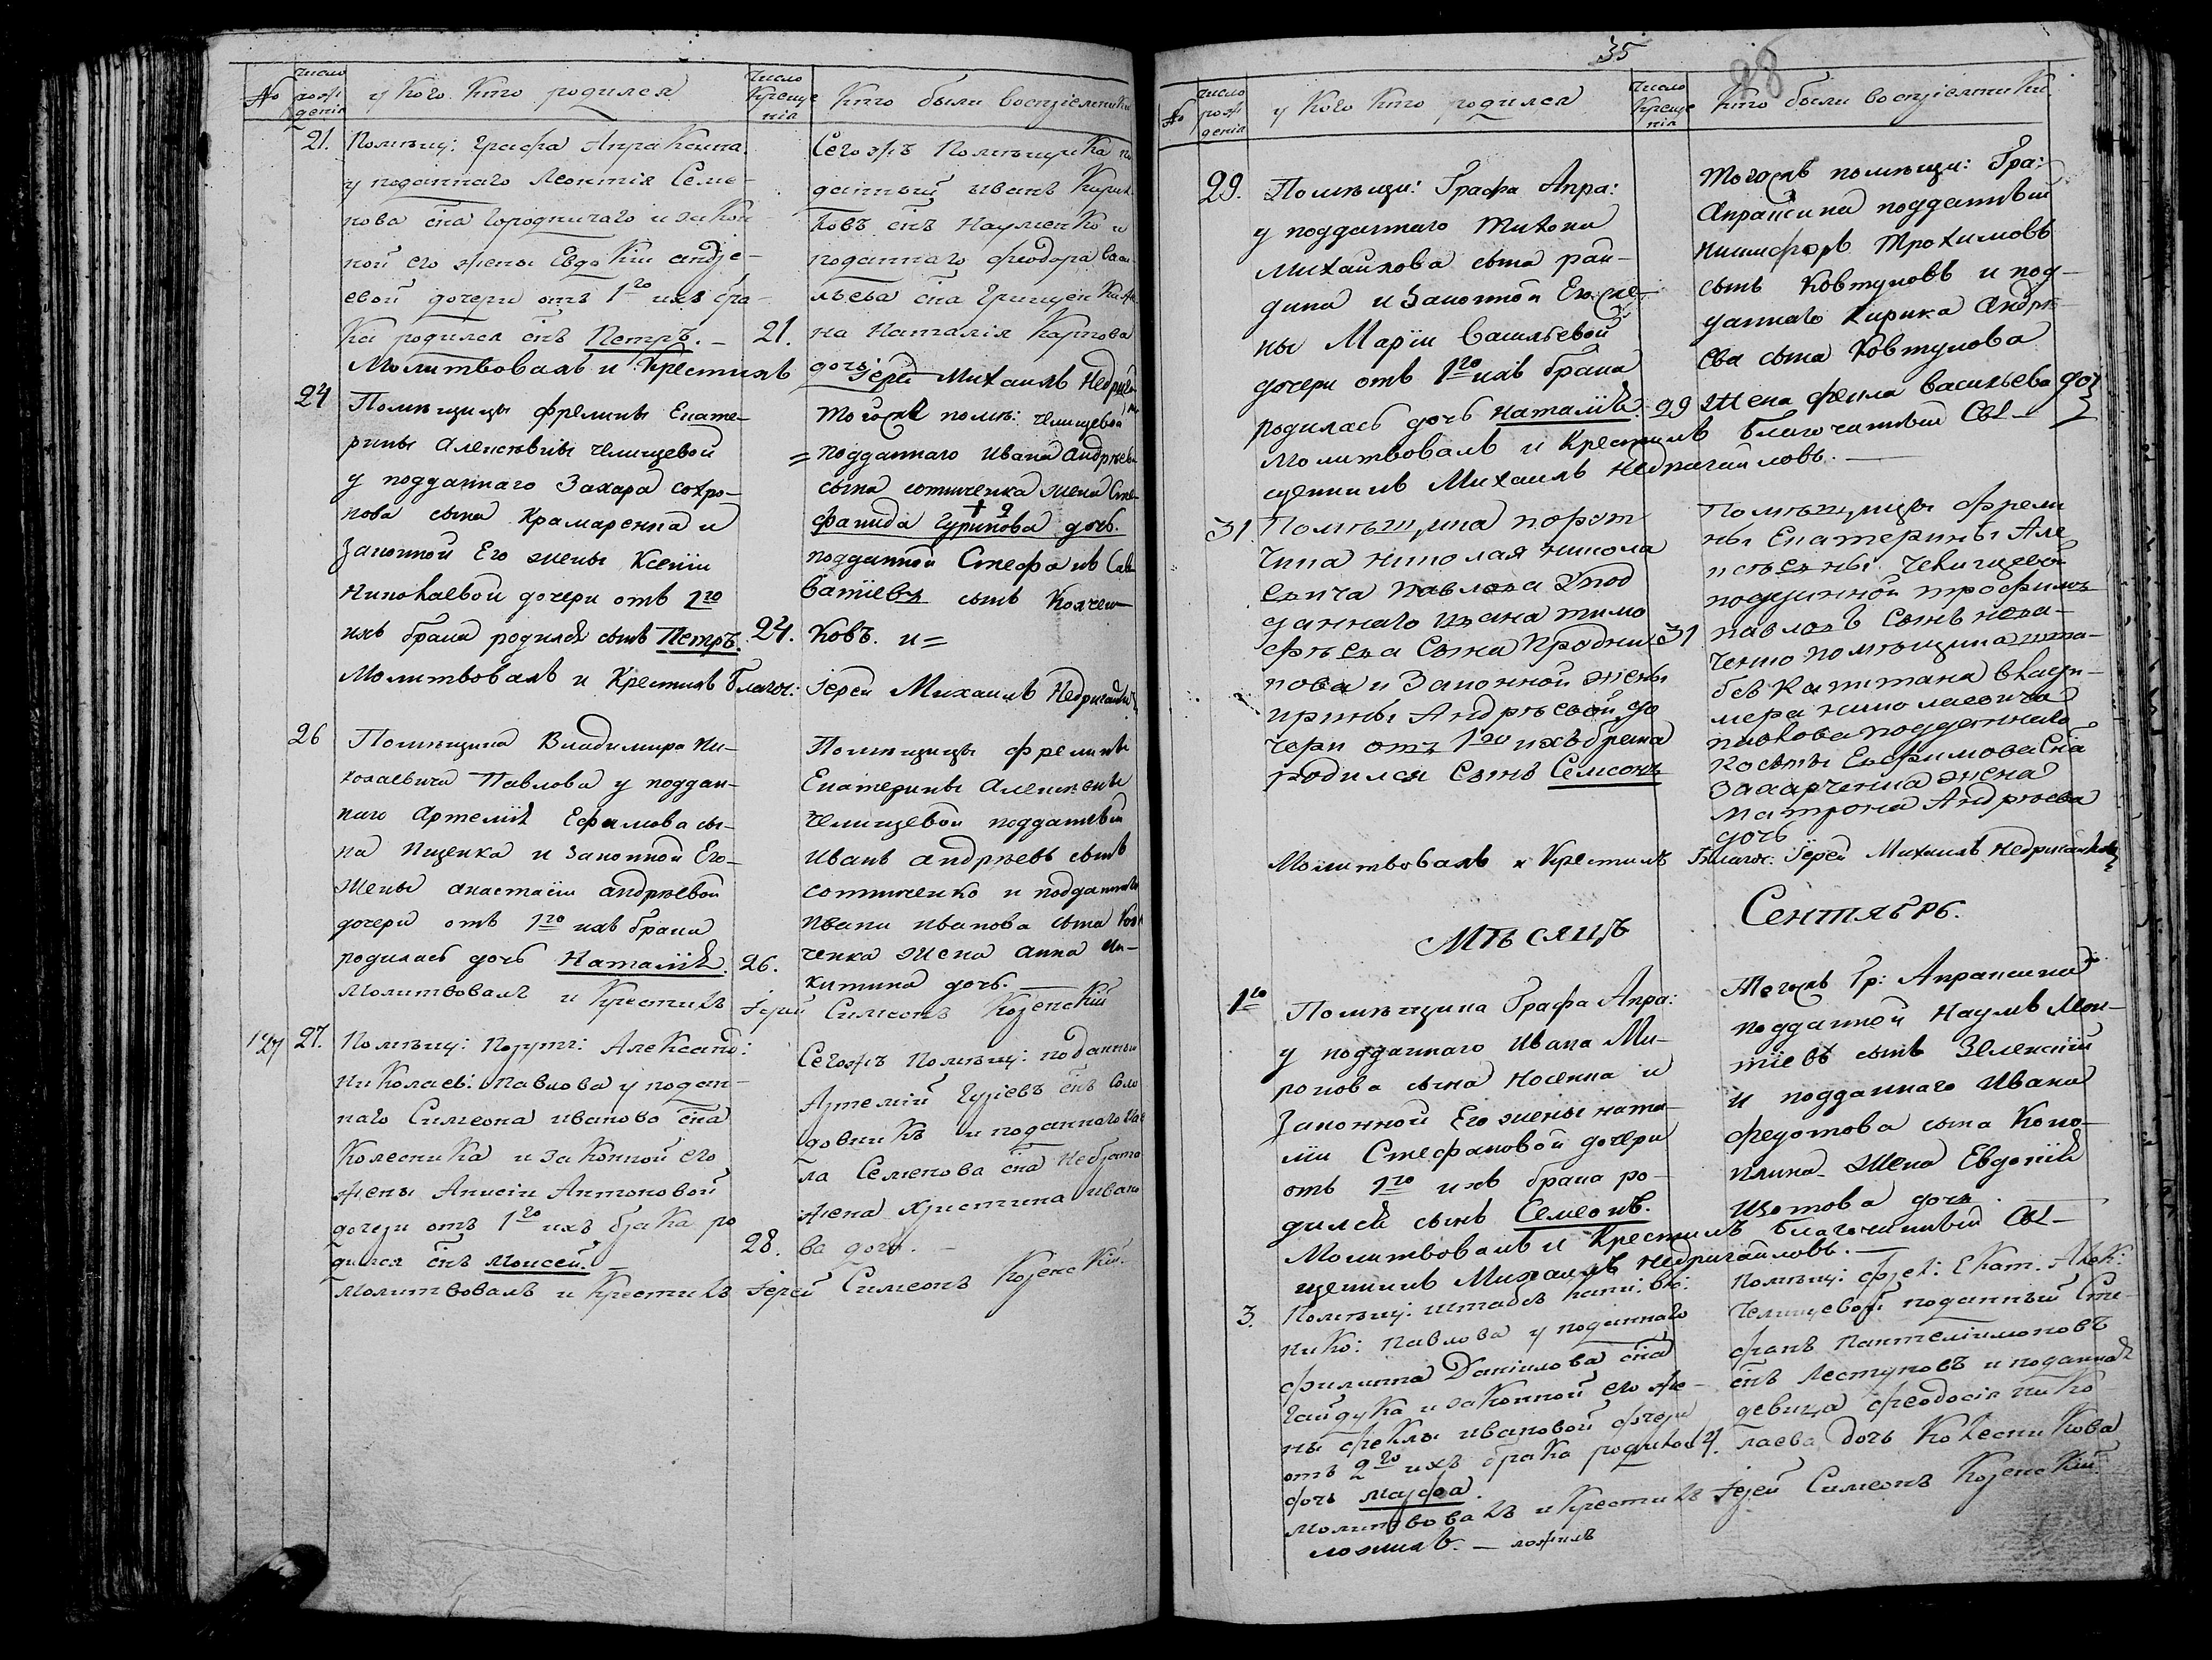 №
число рождения
у кого кто родился
Число Крещения
кто были воспріемники
21. Помѣщ: Графа Апраксина
у поданнаго Леонтія Семе-
нова сна Городничаго и закон-
ной его жены Евдокіи андре-
евой дочери отъ 1го ихъ бра-
ка родился снъ Петръ. — 21.
Молитвовалъ и Крестилъ
Сегожъ Помѣщика по
данный иванъ
ковъ снъ Науменко и
поданнаго Феодора Васи-
льева сна Грищенка же
на Наталія Карпова
дочь
Іерей Михаилъ
24 Помѣщицы фрелины Екате-
рины алексѣвны челищевой
у подданнаго Захара софро-
нова сына Крамаренка и
законной Его жены Ксеніи
николаевой дочери отъ 1го
ихъ брака родился сынъ Петръ. 24.
Молитвовалъ и Крестилъ благоч: Іерей Михаилъ
Тогожъ помѣ: челищевой
= подданнаго Ивана андреева
сына сотниченка жена Сте-
фанида Гуринова дочь.
подданной Стефанъ Сав-
ватіевъ сынъ
ковъ. и =
26 Помѣщика Владимира Ни-
колаевича Павлова у поддан-
наго Артемія Ефимова сы-
на Ищенка и законной Его
жены анастасіи андрѣевой
дочери отъ 1го ихъ брака
родилась дочь Наталія. 26.
Молитвовалъ и Крестилъ Іерей Симеонъ Козенскій
Помѣщицы фрелины
Екатерины алексѣевны
Челищевой подданный
Иванъ андрѣевъ сынъ
сотниченко и подданнаго
Ивана иванова сына
ченка жена анна Ни-
китина дочь. —
127 27. Помѣщ: Поруч: Александ:
Николаев: Павлова у подан-
наго Симеона иванова сна
Колесника и законной его
жены Анисіи Антоновой
дочери отъ 1го ихъ брака ро
дился снъ Моисей. — 28.
Молитвовалъ и Крестилъ Іерей Симеонъ Козенскій.
Сегожъ Помѣщ: поданный
Артемій Гуріевъ снъ Соло
довникъ и поданнаго
ла Семенова сна
жена Христина ивано
ва дочь. —
35
28
№
число рождения
у кого кто родился
число Крещения
кто были воспріемники.
29. Помѣщи: Графа Апра:
у подданнаго Тихона
Михайлова сына рай-
дина и законной Его же-
ны Маріи Васильевой
дочери отъ 1го ихъ брака
родилась дочь Наталія. 29
Молитвовалъ и Крестилъ благочинный Свя-
щенникъ Михаилъ Недригайловъ. —
Тогожъ помѣщи: Гра:
Апраксина подданный
Никифоръ Трохимовъ
сынъ Ковтуновъ и под-
даннаго Кирика андрѣ-
ева сына Ковтунова
жена фекла васильева дочь
31 Помѣщика порут
чика николая никола
евича Павлова у под
даннаго ивана тимо
фѣева Сына
нова и Законной жены
ирины Андрѣевой до
чери отъ 1го ихъ брака
родился Сынъ Семионъ 31
Помѣщицы фрели
ны Екатерины Але
ксѣевны Челищевой
подданной трофимъ
павловъ Сынъ
ченко помѣщика шта-
бсъ капитана влади-
мера николаевича
павлова подданнаго
Ефимова Сна
Захарченка жена
матрона Андрѣева
дочь
Молитвовалъ и Крестилъ Благоч. Іерей Михаилъ Недригайловъ
Мѣсяцъ Сентябрь.
1го Помѣщика Графа Апра:
у подданнаго Ивана Ми-
ронова сына Носенка и
законной Его жены ната-
ліи Стефановой дочери
отъ 1го ихъ брака ро-
дился сынъ Семеонъ.
Молитвовалъ и Крестилъ благочинный Свя-
щенникъ Михаилъ Недригайловъ. —
Тогожъ Гр: Апраксина
подданной Наумъ Леон-
тіевъ сынъ Зеленскій
и подданнаго Ивана
федотова сына Коно-
плина жена Евдокія
Изотова дочь.
3. Помѣщ: штабсъ капи: вла:
Нико: Павлова у поданнаго
филиппа Даніилова сна
Гайдука и законной его же-
ны феклы ивановой дочери
отъ 2го ихъ брака родилась 4.
дочь Марфа.
Молитвовалъ и Крестилъ Іерей Симеонъ Козенскій
Помѣщ: фрел: Екат. Алек:
Челищевой поданный Сте-
фанъ Пантелеимоновъ
снъ Лестуновъ и поданная
девица феодосія Нико
лаева дочь Колесникова
ложилъ. — ложилъ